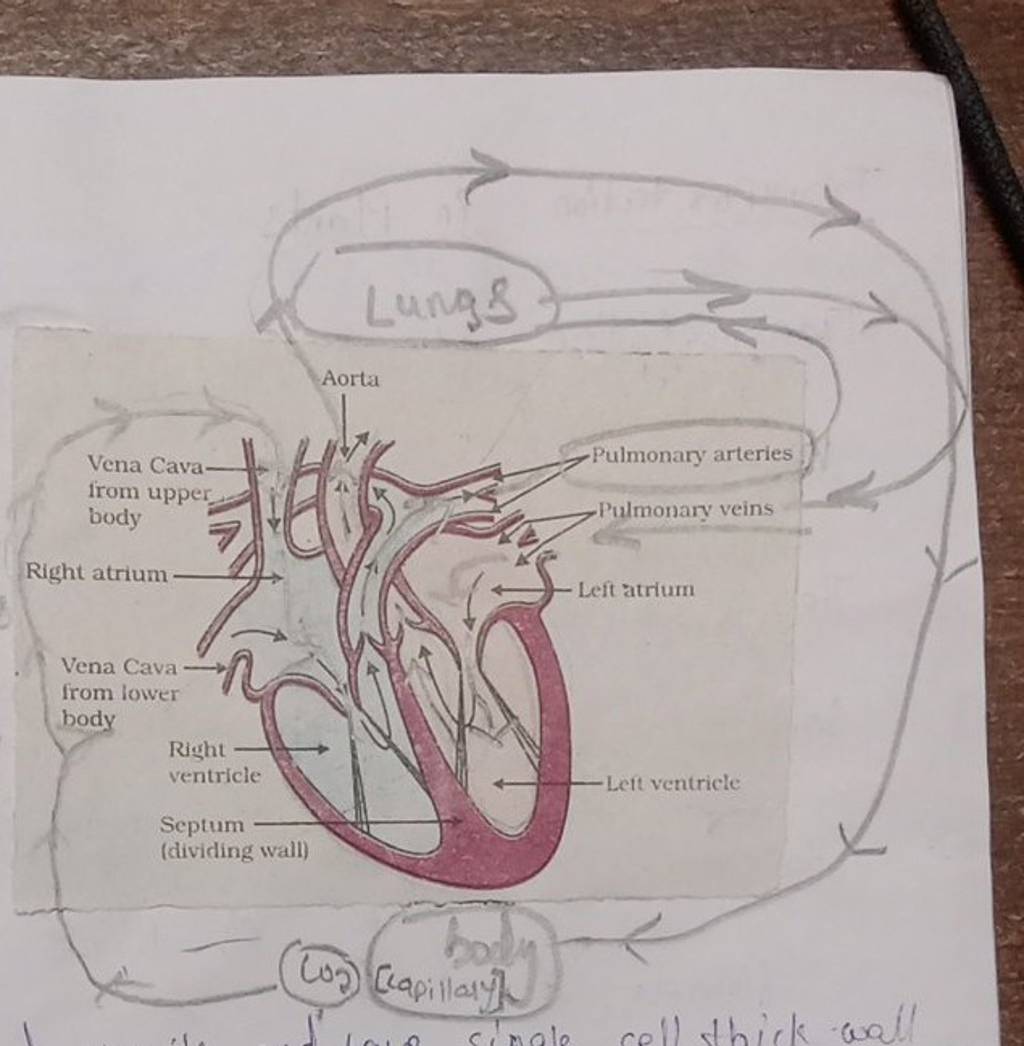 Lungs
Aorta
Vena Cava
from upper
body
Pulmonary arteries
Pulmonary veins
Right atrium
Left atrium
Vena Cava
from lower
body
Right
ventricle
Left ventricle
Septum
(dividing wall)
body
CO2 [capillary]
single cell thick wall